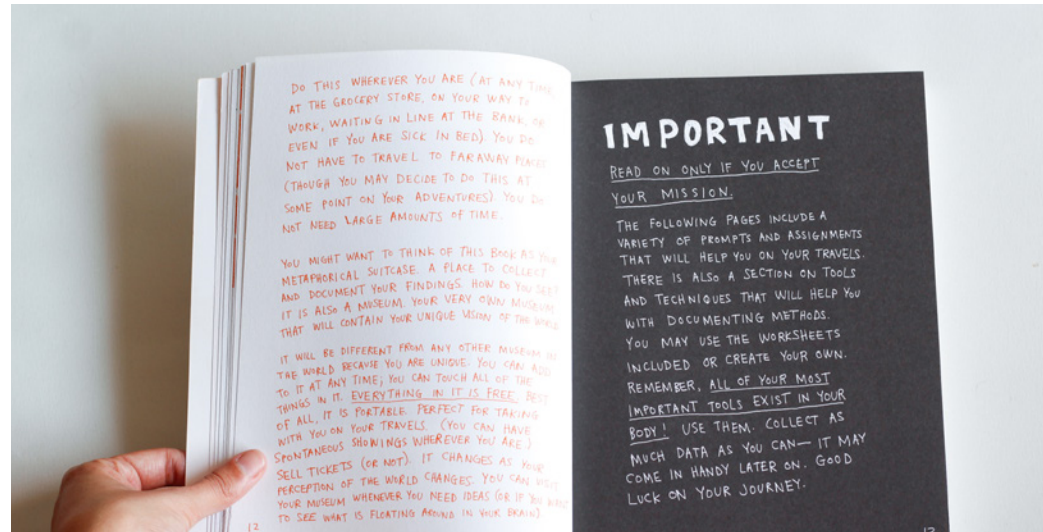 DO THIS WHEREVER YOU ARE (AT ANY TIME,
AT THE GROCERY STORE, ON YOUR WAY TO
WORK, WAITING IN LINE AT THE BANK, OR
EVEN IF YOU ARE SICK IN BED). YOU DO
NOT HAVE TO TRAVEL TO FARAWAY PLACES
(THOUGH YOU MAY DECIDE TO DO THIS AT
SOME POINT ON YOUR ADVENTURES). YOU DO
NOT NEED LARGE AMOUNTS OF TIME.
YOU MIGHT WANT TO THINK OF THIS BOOK AS YOUR
METAPHORICAL SUITCASE. A PLACE TO COLLECT
AND DOCUMENT YOUR FINDINGS. HOW DO YOU SEE?
IT IS ALSO A MUSEUM. YOUR VERY OWN MUSEUM
THAT WILL CONTAIN YOUR UNIQUE VISION OF THE WORLD.
IT WILL BE DIFFERENT FROM ANY OTHER MUSEUM IN
THE WORLD BECAUSE YOU ARE UNIQUE. YOU CAN ADD
TO IT AT ANY TIME; YOU CAN TOUCH ALL OF THE
THINGS IN IT. EVERYTHING IN IT IS FREE. BEST
OF ALL, IT IS PORTABLE. PERFECT FOR TAKING
WITH YOU ON YOUR TRAVELS. (YOU CAN HAVE
SPONTANEOUS SHOWINGS WHEREVER YOU ARE.)
SELL TICKETS (OR NOT). IT CHANGES AS YOUR
PERCEPTION OF THE WORLD CHANGES. YOU CAN VISIT
YOUR MUSEUM WHENEVER YOU NEED IDEAS (OR IF YOU WANT
TO SEE WHAT IS FLOATING AROUND IN YOUR BRAIN)
12
IMPORTANT
READ ON ONLY IF YOU ACCEPT
YOUR MISSION.
THE FOLLOWING PAGES INCLUDE A
VARIETY OF PROMPTS AND ASSIGNMENTS
THAT WILL HELP YOU ON YOUR TRAVELS.
THERE IS ALSO A SECTION ON TOOLS
AND TECHNIQUES THAT WILL HELP YOU
WITH DOCUMENTING METHODS.
YOU MAY USE THE WORKSHEETS
INCLUDED OR CREATE YOUR OWN.
REMEMBER, ALL OF YOUR MOST
IMPORTANT TOOLS EXIST IN YOUR
BODY! USE THEM. COLLECT AS
MUCH DATA AS YOU CAN— IT MAY
COME IN HANDY LATER ON. GOOD
LUCK ON YOUR JOURNEY.
13